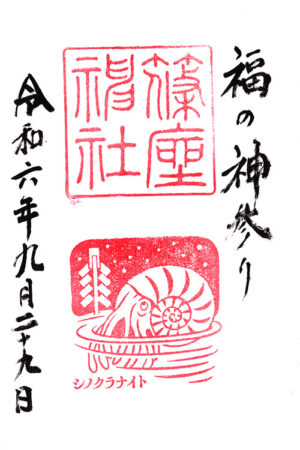 福の神参り
篠座
神社
シノクラナイト
令和六年九月二十九日